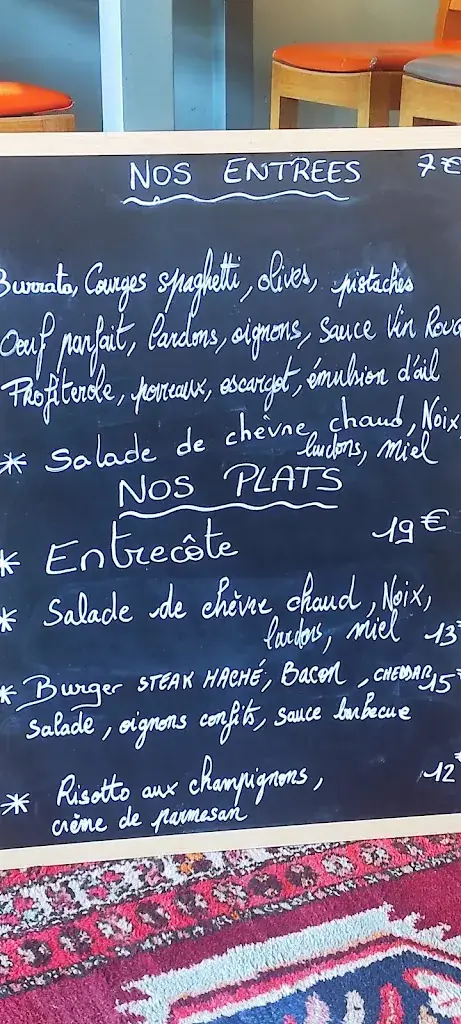 NOS ENTREES 7€
Burrata, Courges spaghetti, olives, pistaches
Oeuf parfait, lardons, oignons, sauce Vin Roug
Profiterole, poireaux, escargot, émulsion d'ail
* Salade de chèvre chaud, Noix,
lardons, miel
NOS PLATS
* Entrecôte 19€
* Salade de chèvre chaud, Noix,
lardons, miel 13
* Burger STEAK HACHÉ, Bacon, CHEDDAR, 15
salade, oignons confits, sauce barbecue
* Risotto aux champignons, 12
crème de parmesan